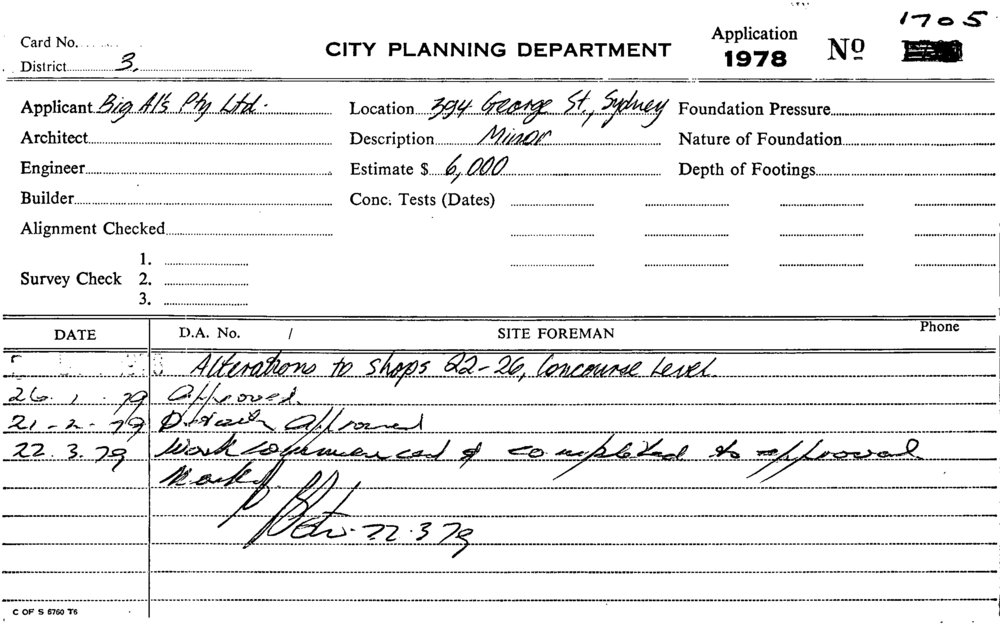 1705
Card No. CITY PLANNING DEPARTMENT Application 1978 Nº
District 3.
Applicant Big Al's Pty Ltd. Location 394 George St., Sydney Foundation Pressure
Architect Description Minor Nature of Foundation
Engineer Estimate $ 6,000 Depth of Footings
Builder Conc. Tests (Dates)
Alignment Checked
1.
Survey Check 2.
3.
DATE D.A. No. / SITE FOREMAN Phone
Alterations to Shops 22-26, Concourse Level.
26. 1. 79 Approved.
21-2-79 Details Approved
22.3.79 Work commenced & completed to approval
22.3.79
C OF S 6760 T6